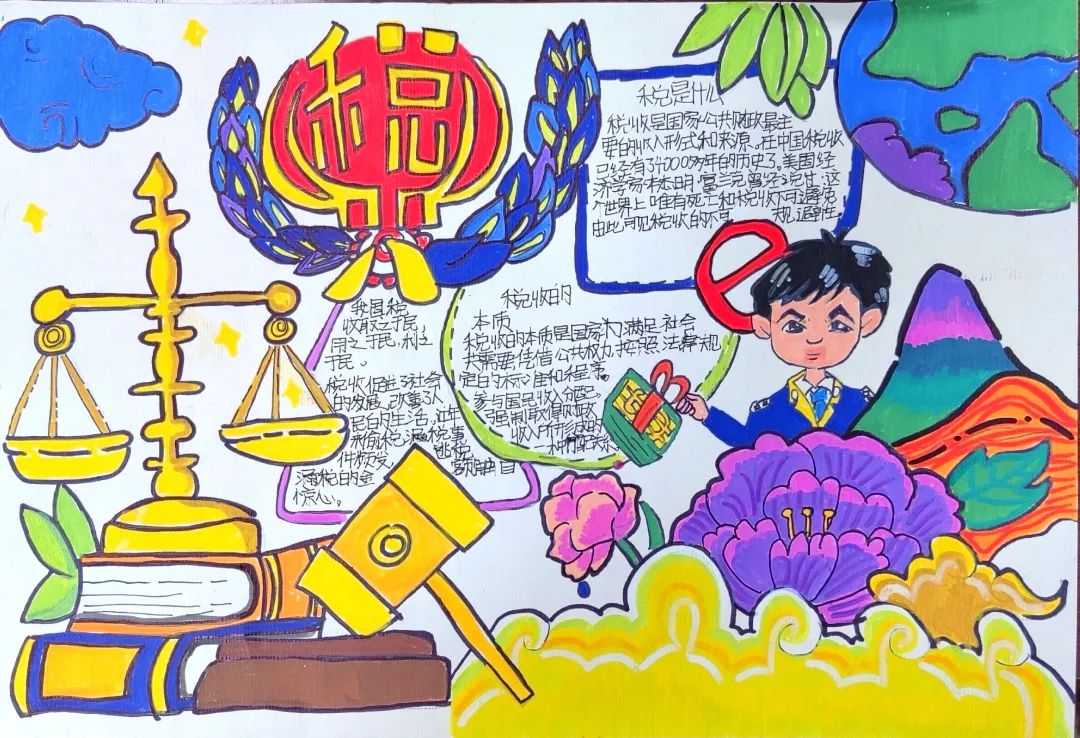 税
税是什么
税收是国家公共财政最主
要的收入形式和来源。在中国税收
已经有了4000多年的历史了。美国经
济学易本杰明·富兰克曾经说过:这
个世界上唯有死亡和税收不可避免
由此可见税收的不可 规避性!
税收的
本质
税收的本质是国家为满足社会
共需要,凭借公共权力,按照法律规
定的标准和程序,
参与国民收入分配,
强制取得财政
收入所形成的
一种分配关系
我国税
收取之于民
用之于民,利之
于民。
税收促进了社会
的发展,改善了人
民的生活。近年
来偷税、漏税事
件频发, 逃税
漏税的金 额触目
惊心。